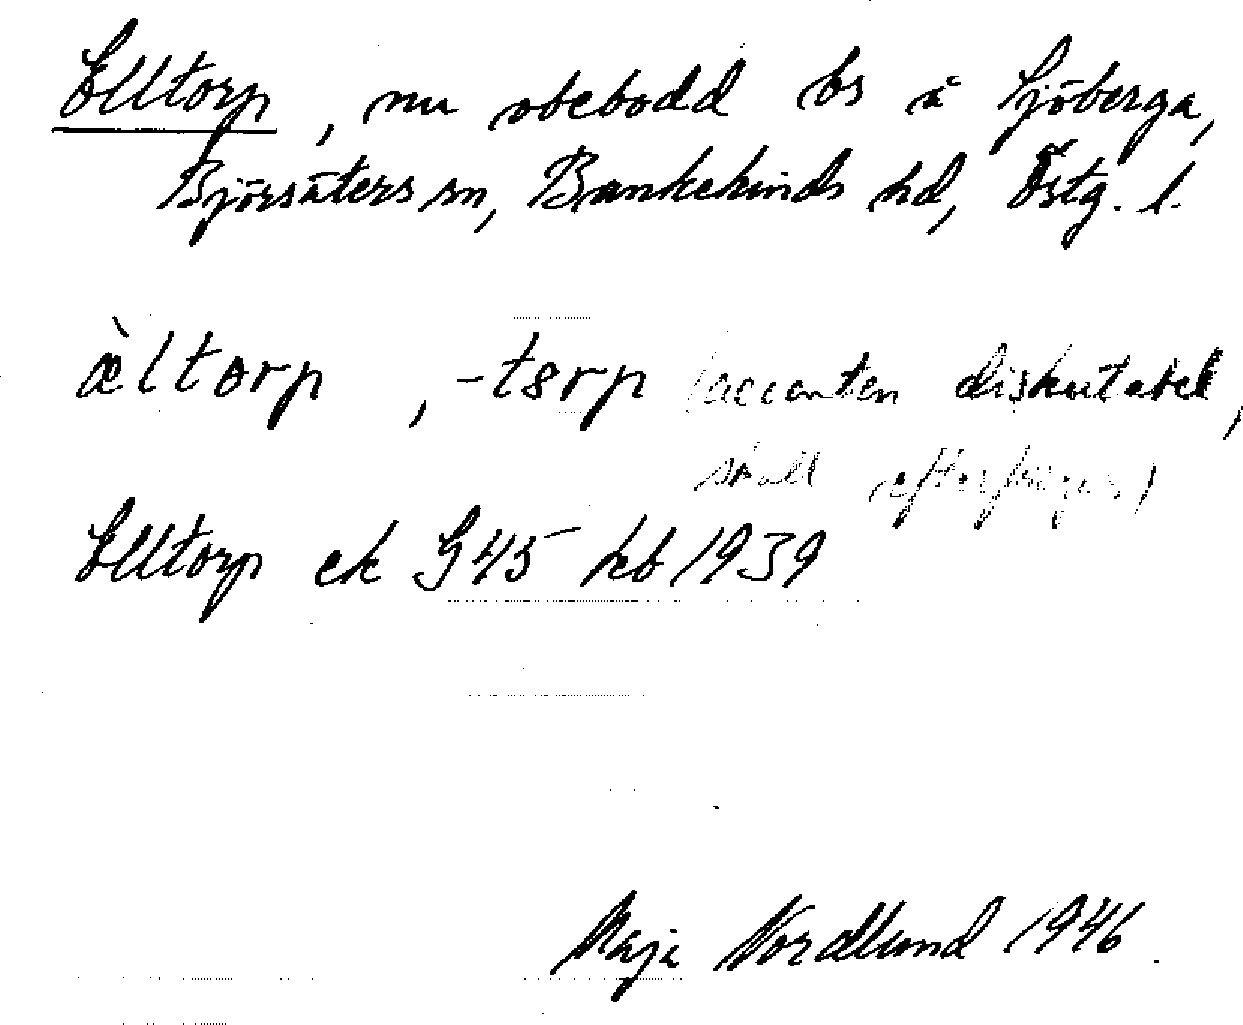 Elltorp, nu obebodd bs å Sjöberga,
Björsäters sn, Bankekinds hd, Östg. l.
æ̀ltorp, -tɵrp (accenten diskutabel,
skall efterfrågas)
Elltorp ek G45 hb 1939
Maja Nordlund 1946.